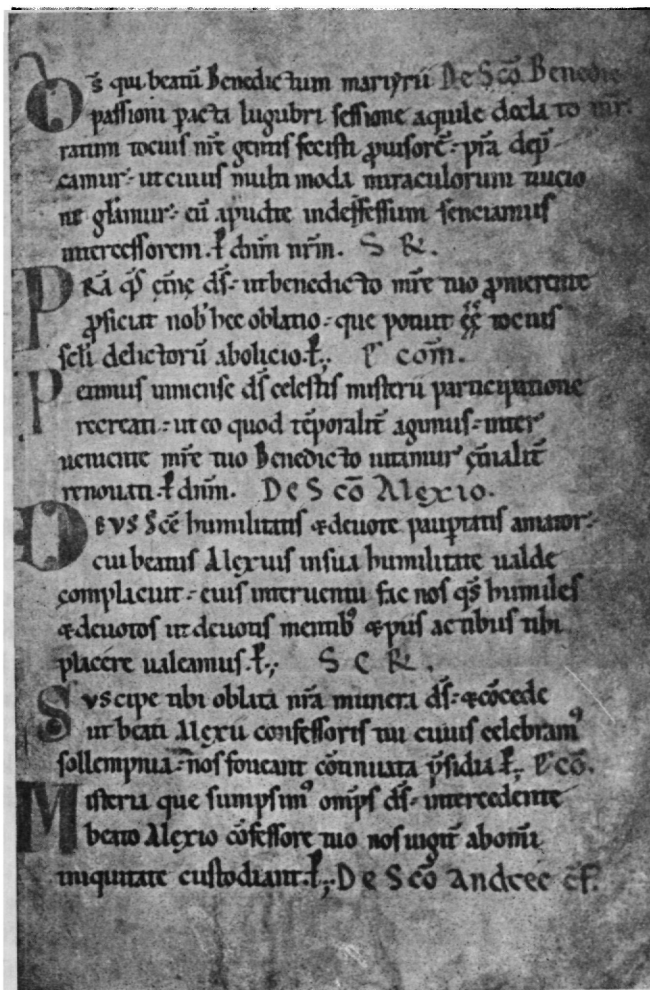 Ds̄ qui beatū Benedictum martyrii De Scō Benedic
passioni pacta lugubri sessione aquile decla to mr̄.
ratum tocius nr̄e gentis fecisti ꝓuisorē: pr̄a dep̄
camur: ut cuius multimoda miraculorum nucio
ne gl̄amur: cū apud te indefessum senciamus
intercessorem. ꝑ dn̄m nr̄m. S R̄.
PRA qs̄ om̄s ds̄: ut benedicto mr̄e tuo ꝓmerente
ꝓficiat nob' hec oblatio: que potuit tocius
scl̄i delictorū abolicio. ꝑ; P' com̄.
Petimus inmense ds̄ celestis misterii participatione
recreati: ut eo quod tēporalit̄ agimus: inter
ueniente mr̄e tuo Benedicto utamur
renouati. ꝑ dn̄m. De Scō Alexio.
DEUS sc̄e humilitatis & deuote paup̄tatis amator:
cui beatus Alęxius in sua humilitate ualde
cōmplacuit: eius interuentu fac nos qs̄ humiles
& deuotos ut deuotis mentib' & piis actibus tibi
placere ualeamus. ꝑ; S C R̄.
SUscipe tibi oblata nr̄a munera ds̄: & cōcede
ut beati Alęxii confessoris tui cuius celebram'
sollempnia: nos foueant cōtinuata p̄sidia ꝑ; P' cō.
Misteria que sumpsim' om̄ps ds̄: intercedente
beato Alęxio cōfessore tuo nos iugit̄ ab om̄i
iniquitate custodiant. ꝑ; De Scō Andree c̄f.